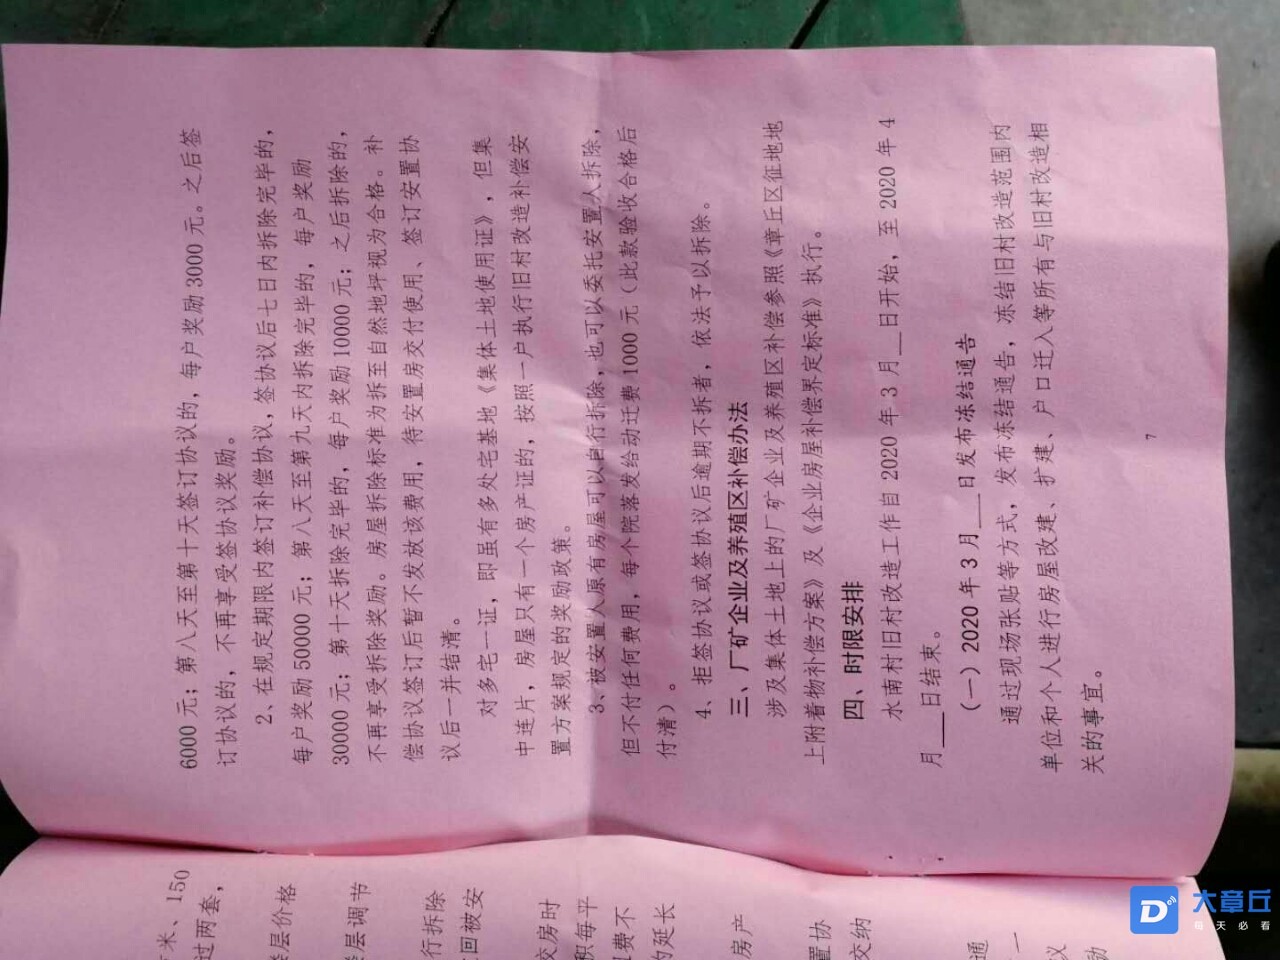 6000 元；第八天至第十天签订协议的，每户奖励 3000 元。之后签
订协议的，不再享受签协议奖励。
2、在规定期限内签订补偿协议，签协议后七日内拆除完毕的，
每户奖励 50000 元；第八天至第九天内拆除完毕的，每户奖励
30000 元；第十天拆除完毕的，每户奖励 10000 元；之后拆除的，
不再享受拆除奖励。房屋拆除标准为拆至自然地坪视为合格。补
偿协议签订后暂不发放该费用，待安置房交付使用、签订安置协
议后一并结清。
对多宅一证，即虽有多处宅基地《集体土地使用证》，但集
中连片，房屋只有一个房产证的，按照一户执行旧村改造补偿安
置方案规定的奖励政策。
3、被安置人原有房屋可以自行拆除，也可以委托安置人拆除，
但不付任何费用，每个院落发给动迁费 1000 元（此款验收合格后
付清）。
4、拒签协议或签协议后逾期不拆者，依法予以拆除。
三、厂矿企业及养殖区补偿办法
涉及集体土地上的厂矿企业及养殖区补偿参照《章丘区征地地
上附着物补偿方案》及《企业房屋补偿界定标准》执行。
四、时限安排
水南村旧村改造工作自 2020 年 3 月__日开始，至 2020 年 4
月___日结束。
（一）2020 年 3 月___日发布冻结通告
通过现场张贴等方式，发布冻结通告，冻结旧村改造范围内
单位和个人进行房屋改建、扩建、户口迁入等所有与旧村改造相
关的事宜。
7
米、150
过两套，
层价格
层调节
行拆除
回被安
交房时
积每平
费不
的延长
房产
置协
交纳
通
一
议
励
大章丘
每天必看